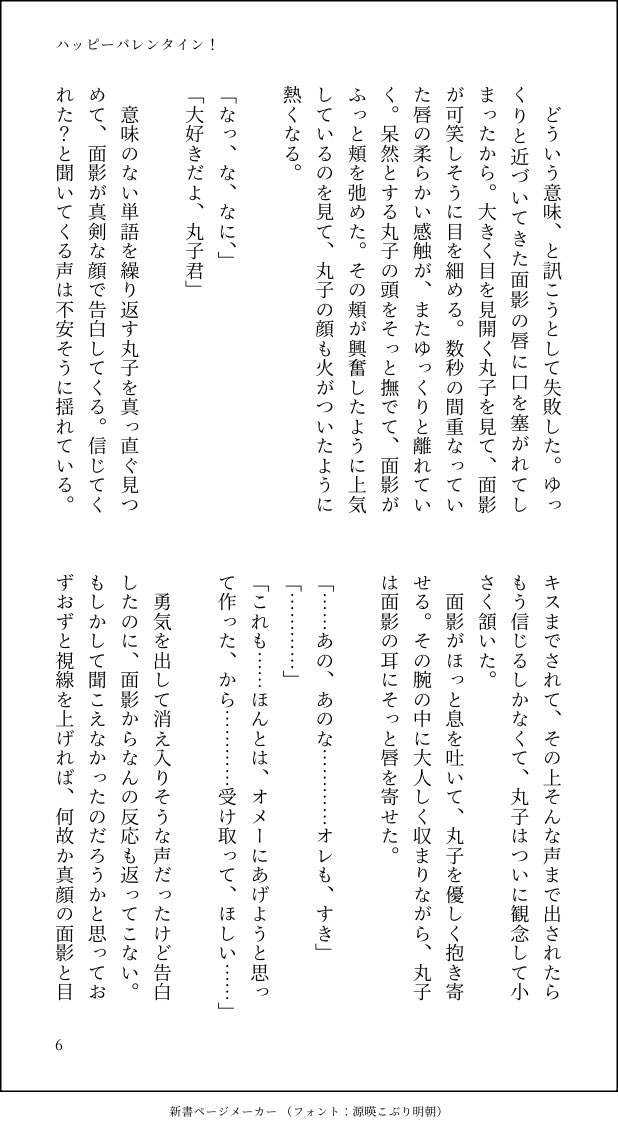 ハッピーバレンタイン！
　どういう意味、と訊こうとして失敗した。ゆっ
くりと近づいてきた面影の唇に口を塞がれてし
まったから。大きく目を見開く丸子を見て、面影
が可笑しそうに目を細める。数秒の間重なってい
た唇の柔らかい感触が、またゆっくりと離れてい
く。呆然とする丸子の頭をそっと撫でて、面影が
ふっと頬を弛めた。その頬が興奮したように上気
しているのを見て、丸子の顔も火がついたように
熱くなる。
「なっ、な、なに、」
「大好きだよ、丸子君」
　意味のない単語を繰り返す丸子を真っ直ぐ見つ
めて、面影が真剣な顔で告白してくる。信じてく
れた？と聞いてくる声は不安そうに揺れている。
キスまでされて、その上そんな声まで出されたら
もう信じるしかなくて、丸子はついに観念して小
さく頷いた。
　面影がほっと息を吐いて、丸子を優しく抱き寄
せる。その腕の中に大人しく収まりながら、丸子
は面影の耳にそっと唇を寄せた。
「……あの、あのな…………オレも、すき」
「…………」
「これも……ほんとは、オメーにあげようと思っ
て作った、から…………受け取って、ほしい……」
　勇気を出して消え入りそうな声だったけど告白
したのに、面影からなんの反応も返ってこない。
もしかして聞こえなかったのだろうかと思ってお
ずおずと視線を上げれば、何故か真顔の面影と目
6
新書ページメーカー（フォント：源暎こぶり明朝）